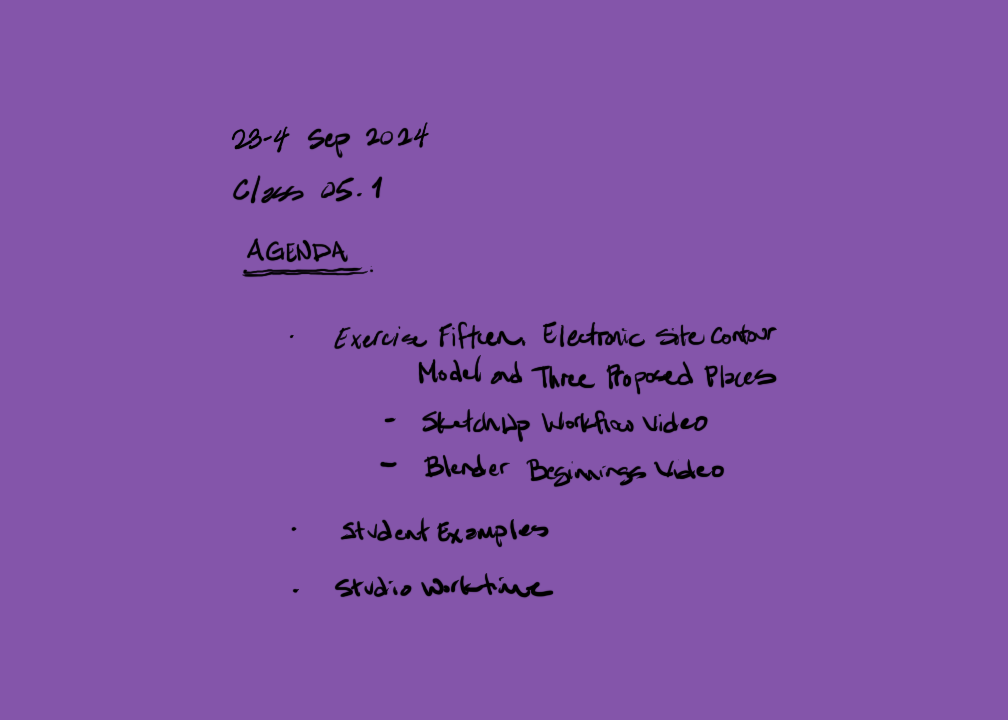 23-4 Sep 2024
Class 05.1
AGENDA
· Exercise Fifteen, Electronic Site Contour
Model and Three Proposed Places
- SketchUp Workflow Video
- Blender Beginnings Video
· Student Examples
· Studio Worktime